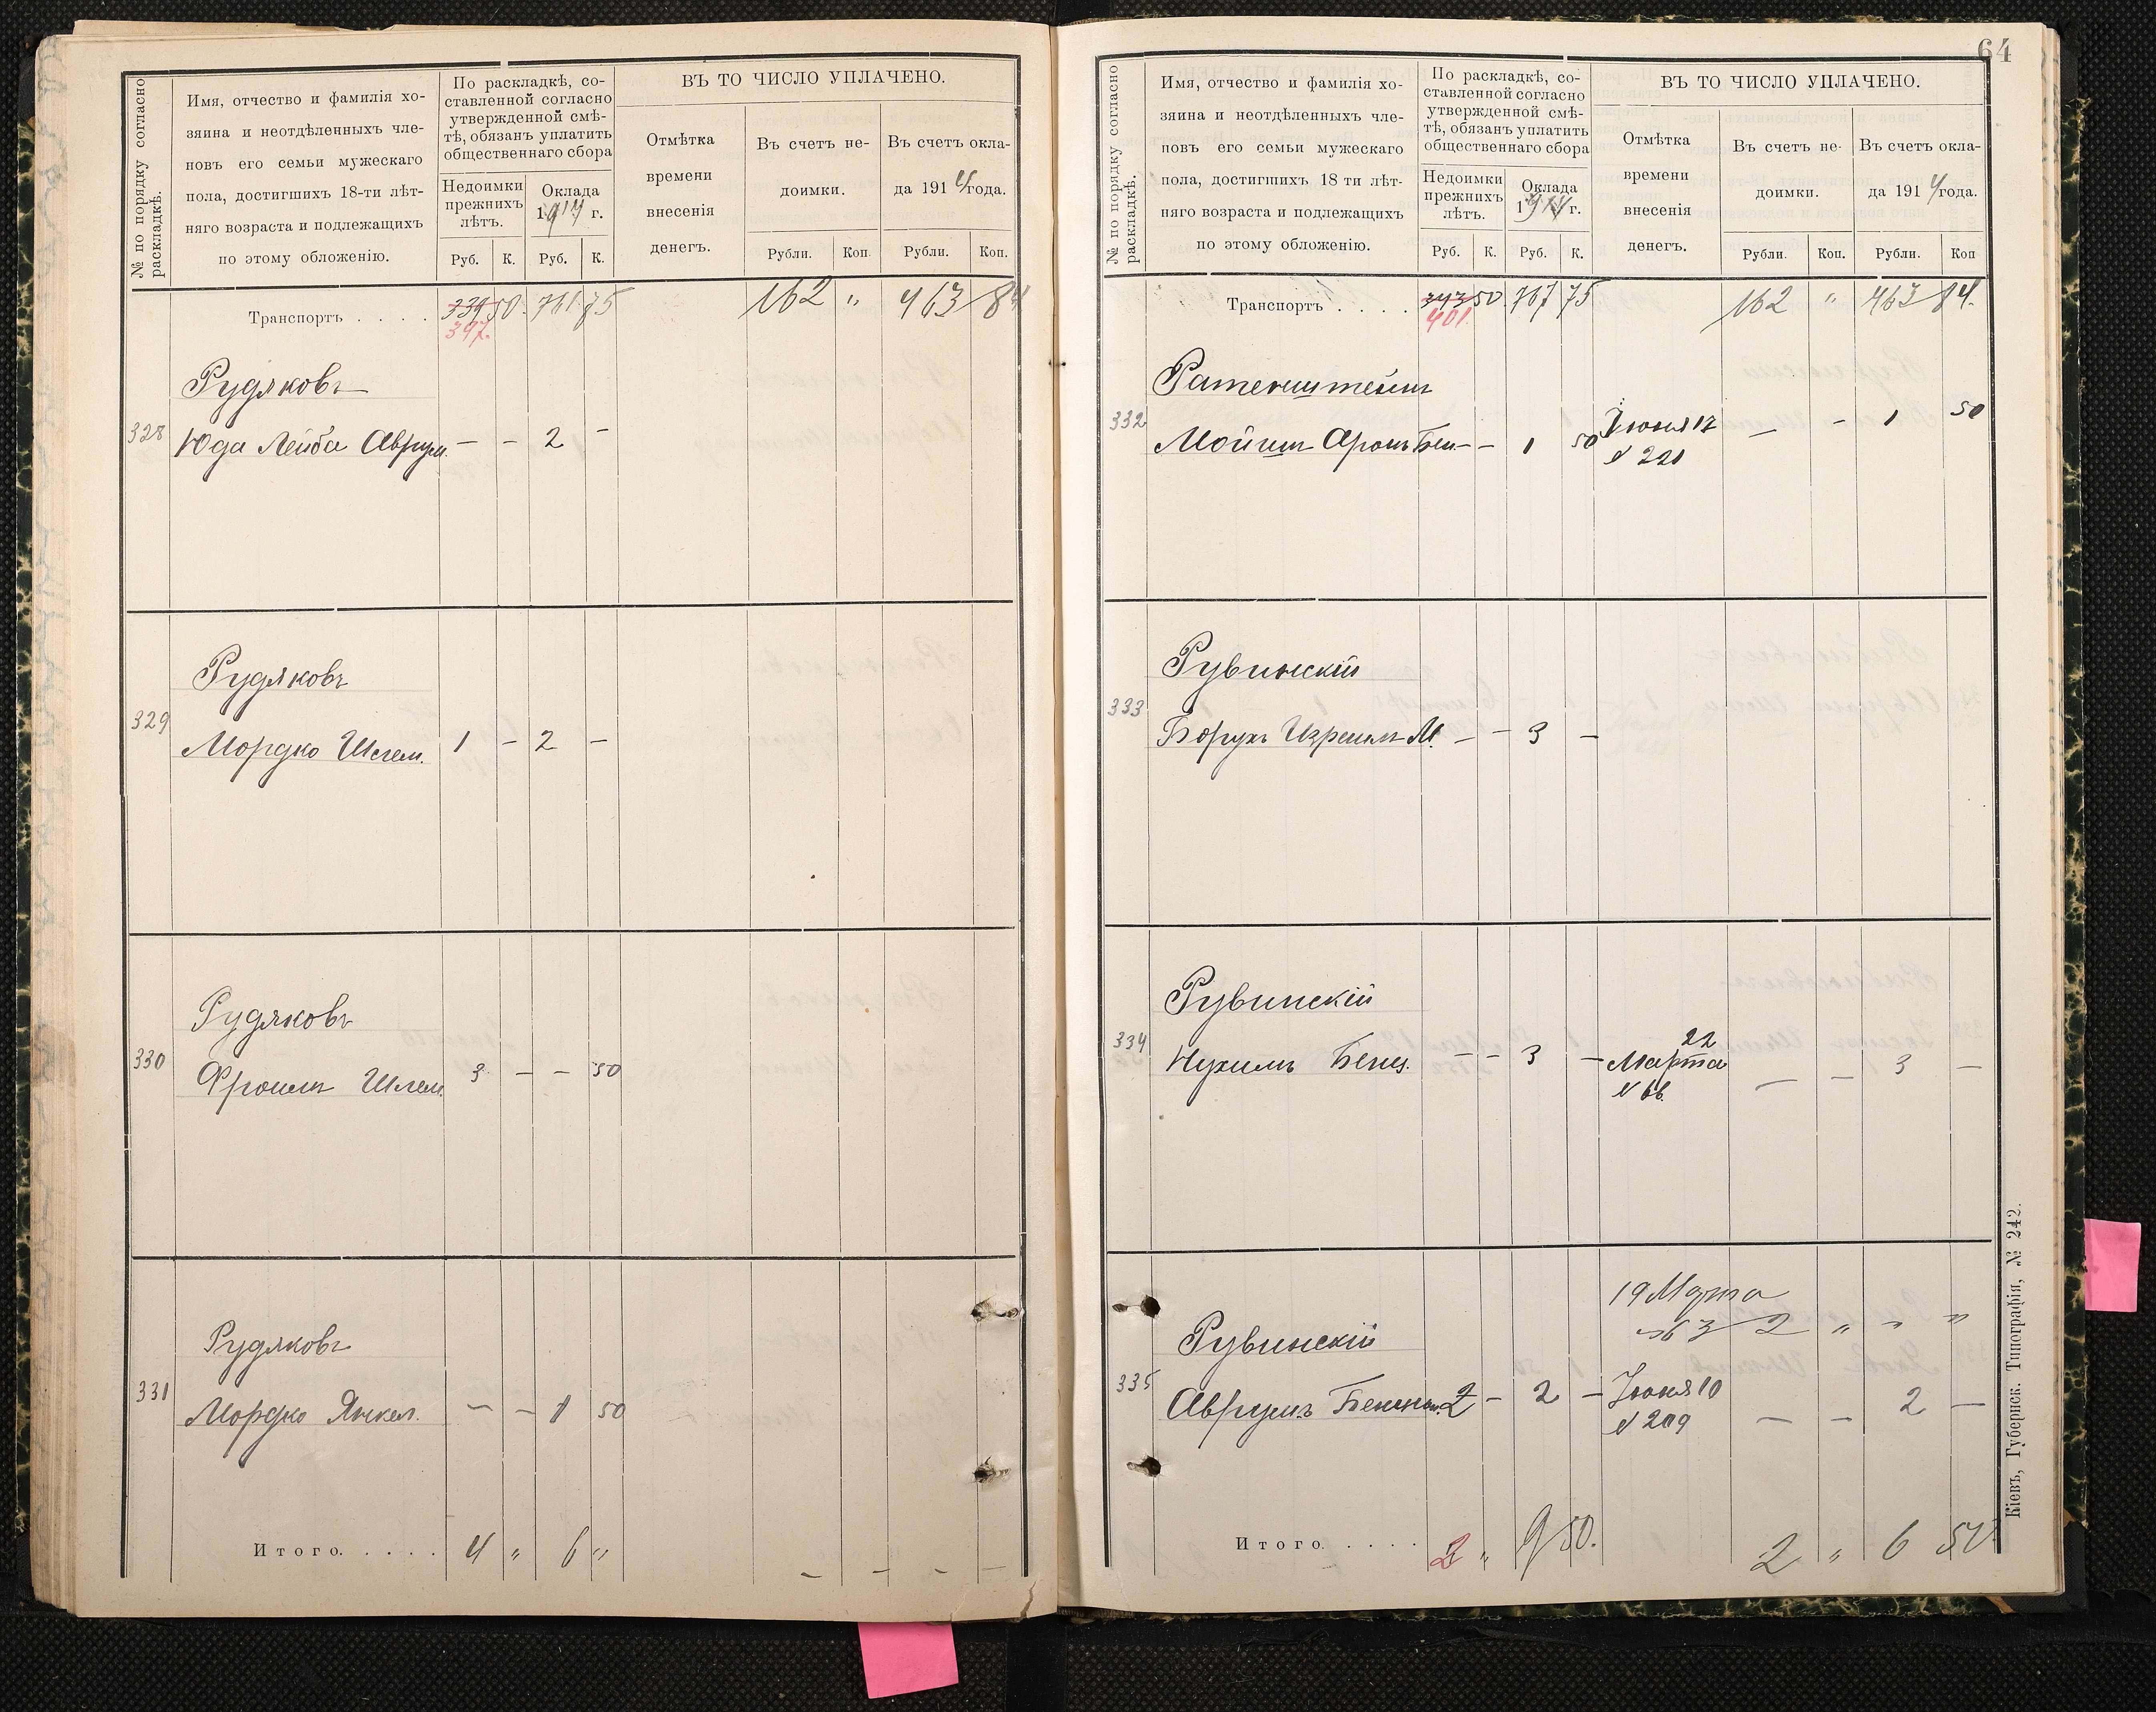 № по порядку согласно
раскладкѣ.
Имя, отчество и фамилія хо-
зяина и неотдѣленныхъ чле-
новъ его семьи мужескаго
пола, достигшихъ 18-ти лѣт-
няго возраста и подлежащихъ
по этому обложенію.
По раскладкѣ, со-
ставленной согласно
утвержденной смѣ-
тѣ, обязанъ уплатить
общественнаго сбора
Недоимки
прежнихъ
лѣтъ.
Оклада
1914 г.
Руб. К. Руб. К.
ВЪ ТО ЧИСЛО УПЛАЧЕНО.
Отмѣтка
времени
внесенія
денегъ.
Въ счетъ не-
доимки.
Въ счетъ окла-
да 1914 года.
Рубли. Коп. Рубли. Коп.
Транспортъ . . . . 339 50. 761 75 162 " 463 84
397.
Рудяковъ
328 Юда Лейба Аврум. — — 2 —
Рудяковъ
329 Мордко Шлем. 1 — 2 —
Рудяковъ
330 Фроимъ Шлем. 3 — — 50
Рудяковъ
331 Мордко Янкел. — — 1 50
Итого. . . . . 4 " 6 " — — — —
64
№ по порядку согласно
раскладкѣ.
Имя, отчество и фамилія хо-
зяина и неотдѣленныхъ чле-
новъ его семьи мужескаго
пола, достигшихъ 18 ти лѣт-
няго возраста и подлежащихъ
по этому обложенію.
По раскладкѣ, со-
ставленной согласно
утвержденной смѣ-
тѣ, обязанъ уплатить
общественнаго сбора
Недоимки
прежнихъ
лѣтъ.
Оклада
1914 г.
Руб. К. Руб. К.
ВЪ ТО ЧИСЛО УПЛАЧЕНО.
Отмѣтка
времени
внесенія
денегъ.
Въ счетъ не-
доимки.
Въ счетъ окла-
да 1914 года.
Рубли. Коп. Рубли. Коп
Транспортъ . . . . 343 50 767 75 162 " 463 84.
401.
Ратенштейнъ
332 Мойше Аронъ Бен. — — 1 50 Іюня 17 — — 1 50
№ 221
Рувинскій
333 Борухъ Израиль М. — — 3 —
Рувинскій
22
334 Нухимъ Бенц. — — 3 — Марта — — 3 —
№ 66.
19 Марта
№ 63 2 " " "
Рувинскій
335 Аврумъ Бенцион. 2 — 2 — Іюня 10 — — 2 —
№ 209
Итого. . . . . 2 " 9 50. 2 " 6 50.
Кіевъ, Губернск. Типографія, № 242.